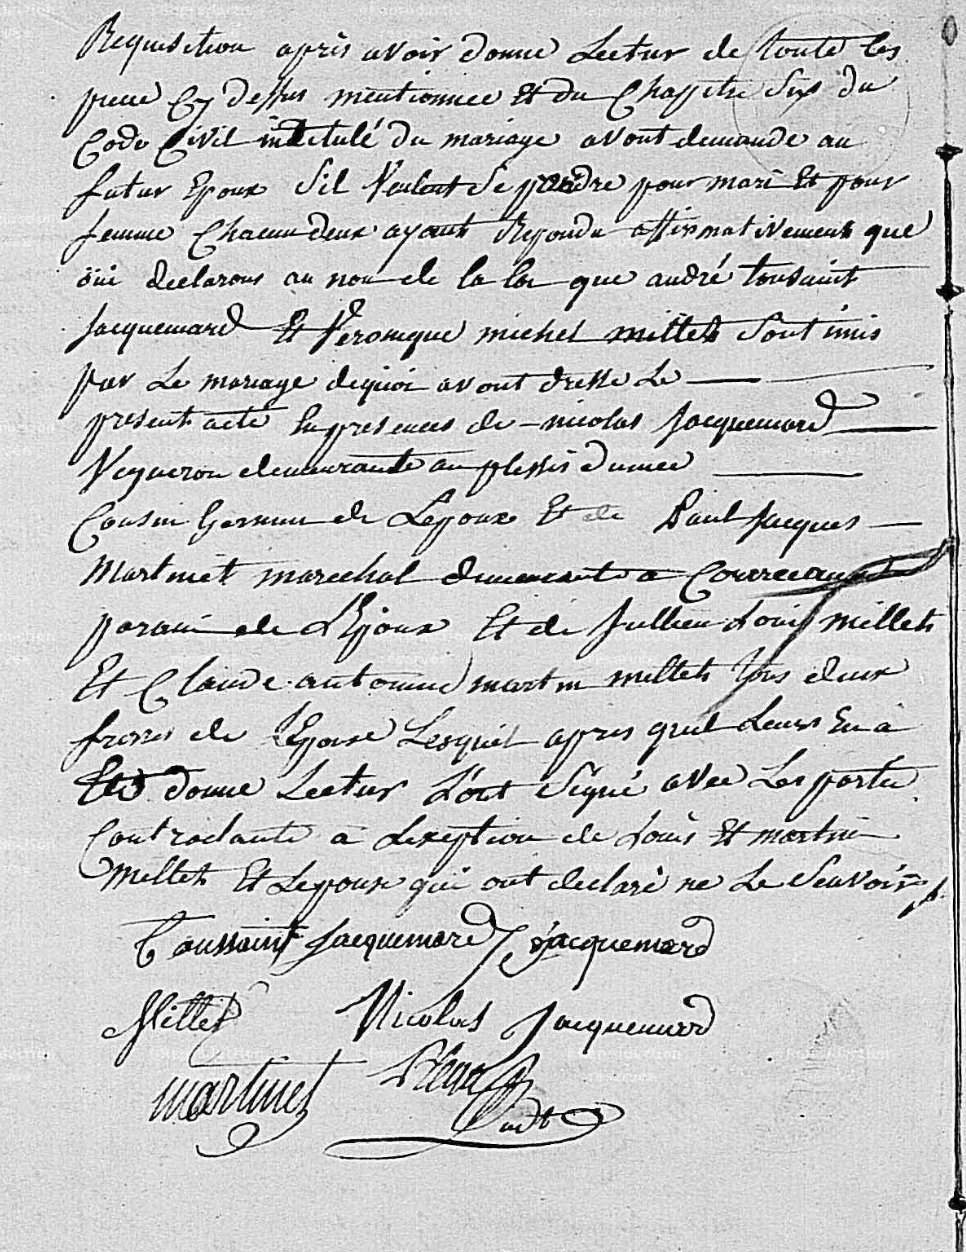 Requisition apris avoir donne Lectur de toute les
piece Cy dessus mentionnee Et du Chapitre Six du
Code Civil intitulé du mariage avont demande au
futur Epoux Sil Veulent Se prendre pour mari Et pour
femme Chacun deux ayant Repondu affirmativement que
oui declarons au nom de la loi que andré tousaint
Jacquemard Et Veronique michel millet Sont unis
par Le mariage dequoi avont dresse Le
present acte En presences de nicolas Jacquemard
Vigneron demeurante au plessis
Cousin Germin de Lepoux Et de Paul Jacques
Martinet marechal demeurant a
parain de L'Epoux Et de Jullien Louis millet
Et Claude antoinne martin millet tous deux
freres de L'Epouse Lesquel apres quil Leurs En à
Ete donne Lectur L'ont Signé avec Les partie
Contractante a Lexeption de Louis Et martin
Millet Et Lepoux qui ont declaré ne Le Scavoir
Toussaint Jacquemard Jacquemard
Millet Nicolas Jacquemard
martinet